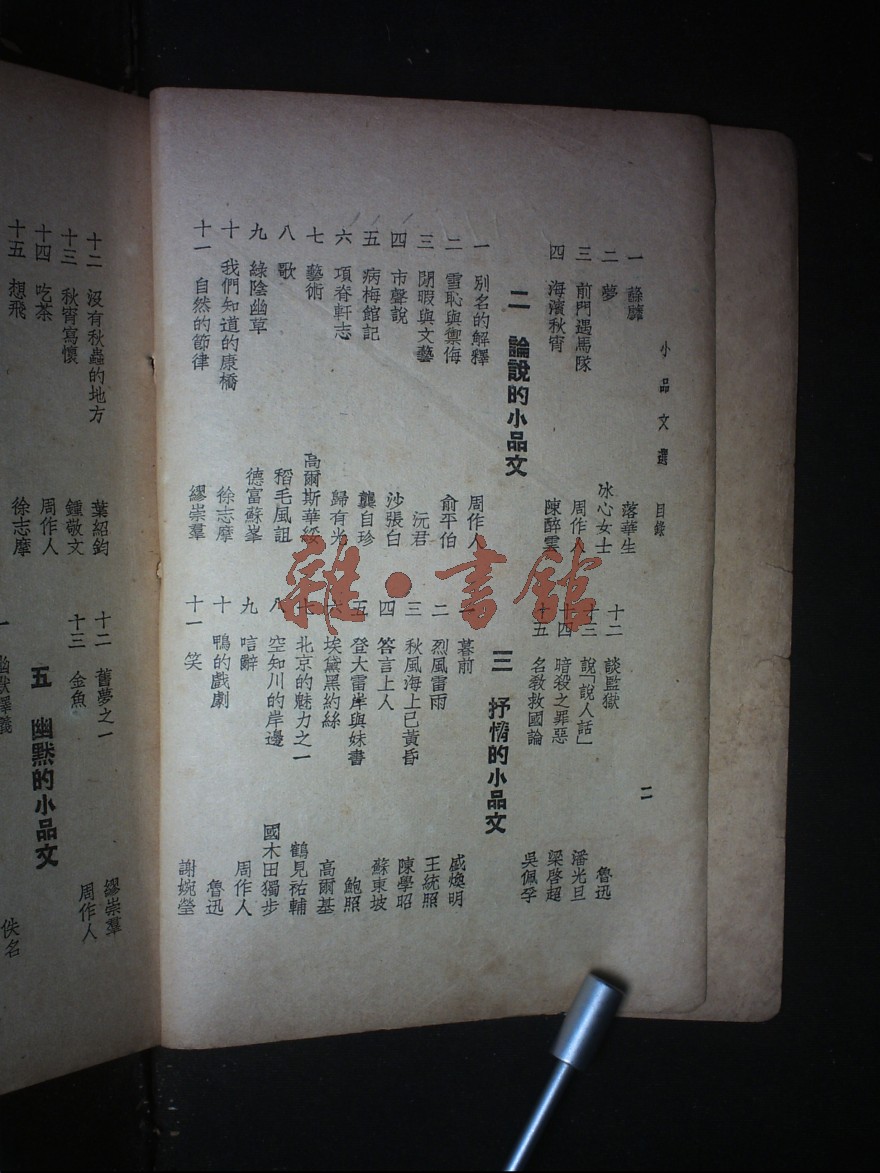 小品文選 目錄 二
一 落華生
二 夢 冰心女士
三 前門遇馬隊 周作人
四 海濱秋宵 陳醉雲
二 論說的小品文
一 別名的解釋 周作人
二 雪恥與禦侮 俞平伯
三 閒暇與文藝 沅君
四 市聲說 沙張白
五 病梅館記 龔自珍
六 項脊軒志 歸有光
七 藝術 高爾斯華綏
八 歌 稻毛風詛
九 綠陰幽草 德富蘇峯
十 我們知道的康橋 徐志摩
十一 自然的節律 繆崇羣
十二 談監獄 魯迅
十三 說「說人話」 潘光旦
十四 暗殺之罪惡 梁啓超
十五 名教救國論 吳佩孚
三 抒情的小品文
一 暮前 盛煥明
二 烈風雷雨 王統照
三 秋風海上已黃昏 陳學昭
四 答言上人 蘇東坡
五 登大雷岸與妹書 鮑照
六 埃黛黑約絲 高爾基
七 北京的魅力之一 鶴見祐輔
八 空知川的岸邊 國木田獨步
九 唁辭 周作人
十 鴨的戲劇 魯迅
十一 笑 謝婉瑩
十二 沒有秋蟲的地方 葉紹鈞
十三 秋宵寫懷 鍾敬文
十四 吃茶 周作人
十五 想飛 徐志摩
十二 舊夢之一 繆崇羣
十三 金魚 周作人
五 幽默的小品文
一 幽默釋義 佚名
雜·書館